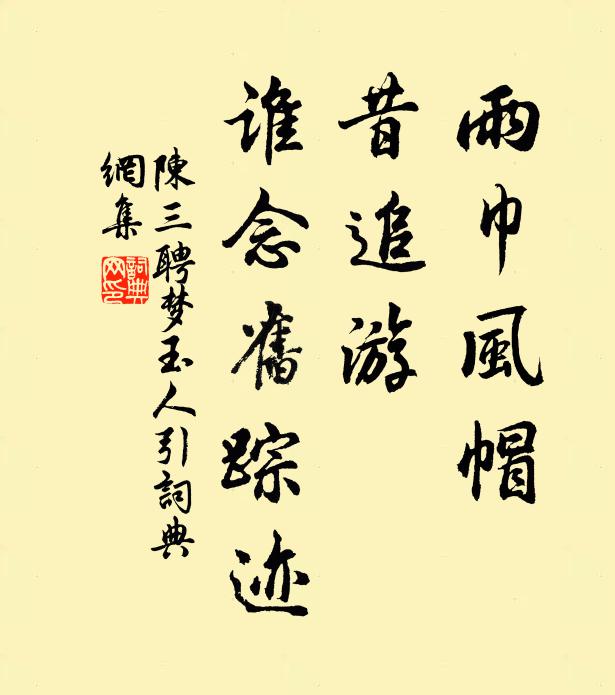 雨巾風帽
昔追游
谁念舊踪迹
陳三聘梦玉人引詞典
網集
詞典
网印